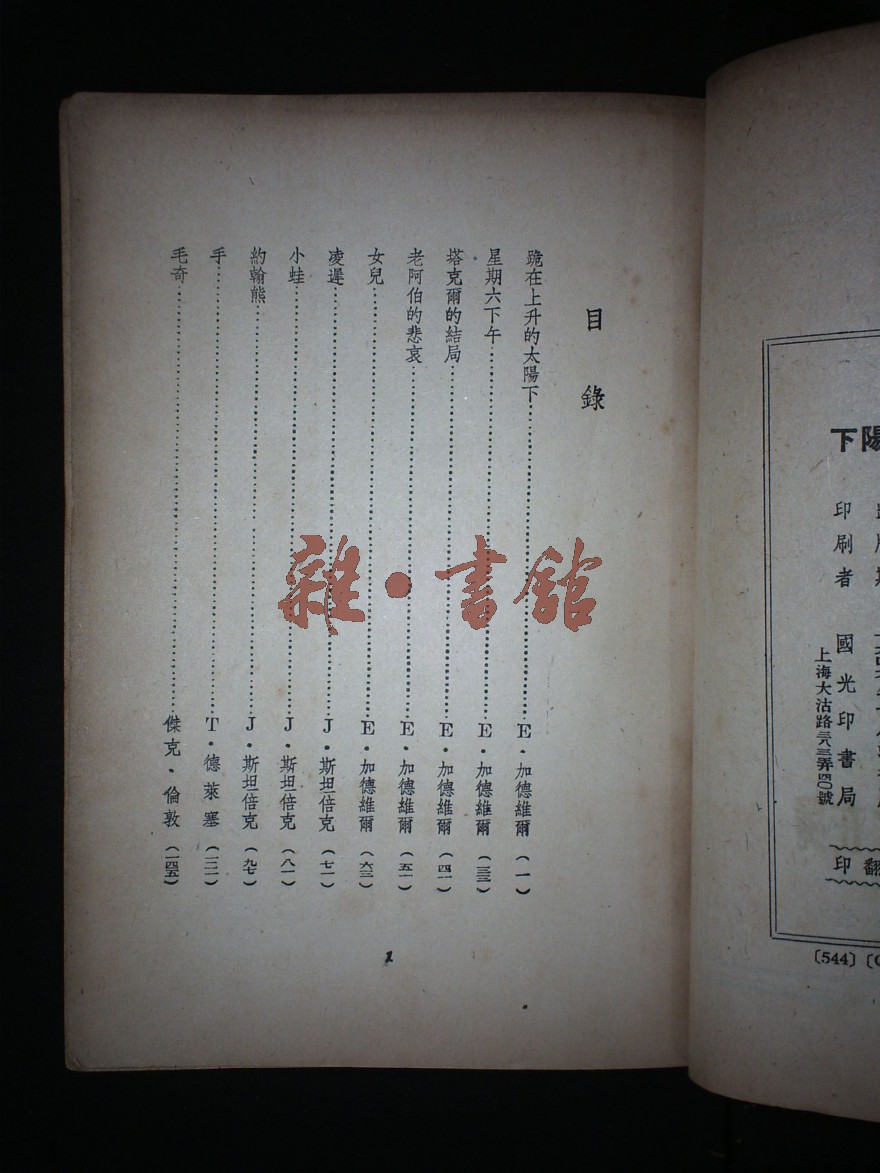 目錄
跪在上升的太陽下……E·加德維爾(一)
星期六下午……E·加德維爾(三三)
塔克爾的結局……E·加德維爾(四一)
老阿伯的悲哀……E·加德維爾(五一)
女兒……E·加德維爾(六三)
凌遲……J·斯坦倍克(七一)
小蛙……J·斯坦倍克(八一)
約翰熊……J·斯坦倍克(九七)
手……T·德萊塞(一二一)
毛奇……傑克·倫敦(一四五)
1
雜·書館
下陽
印刷者 國光印書局
上海大沽路
印翻
〔544〕